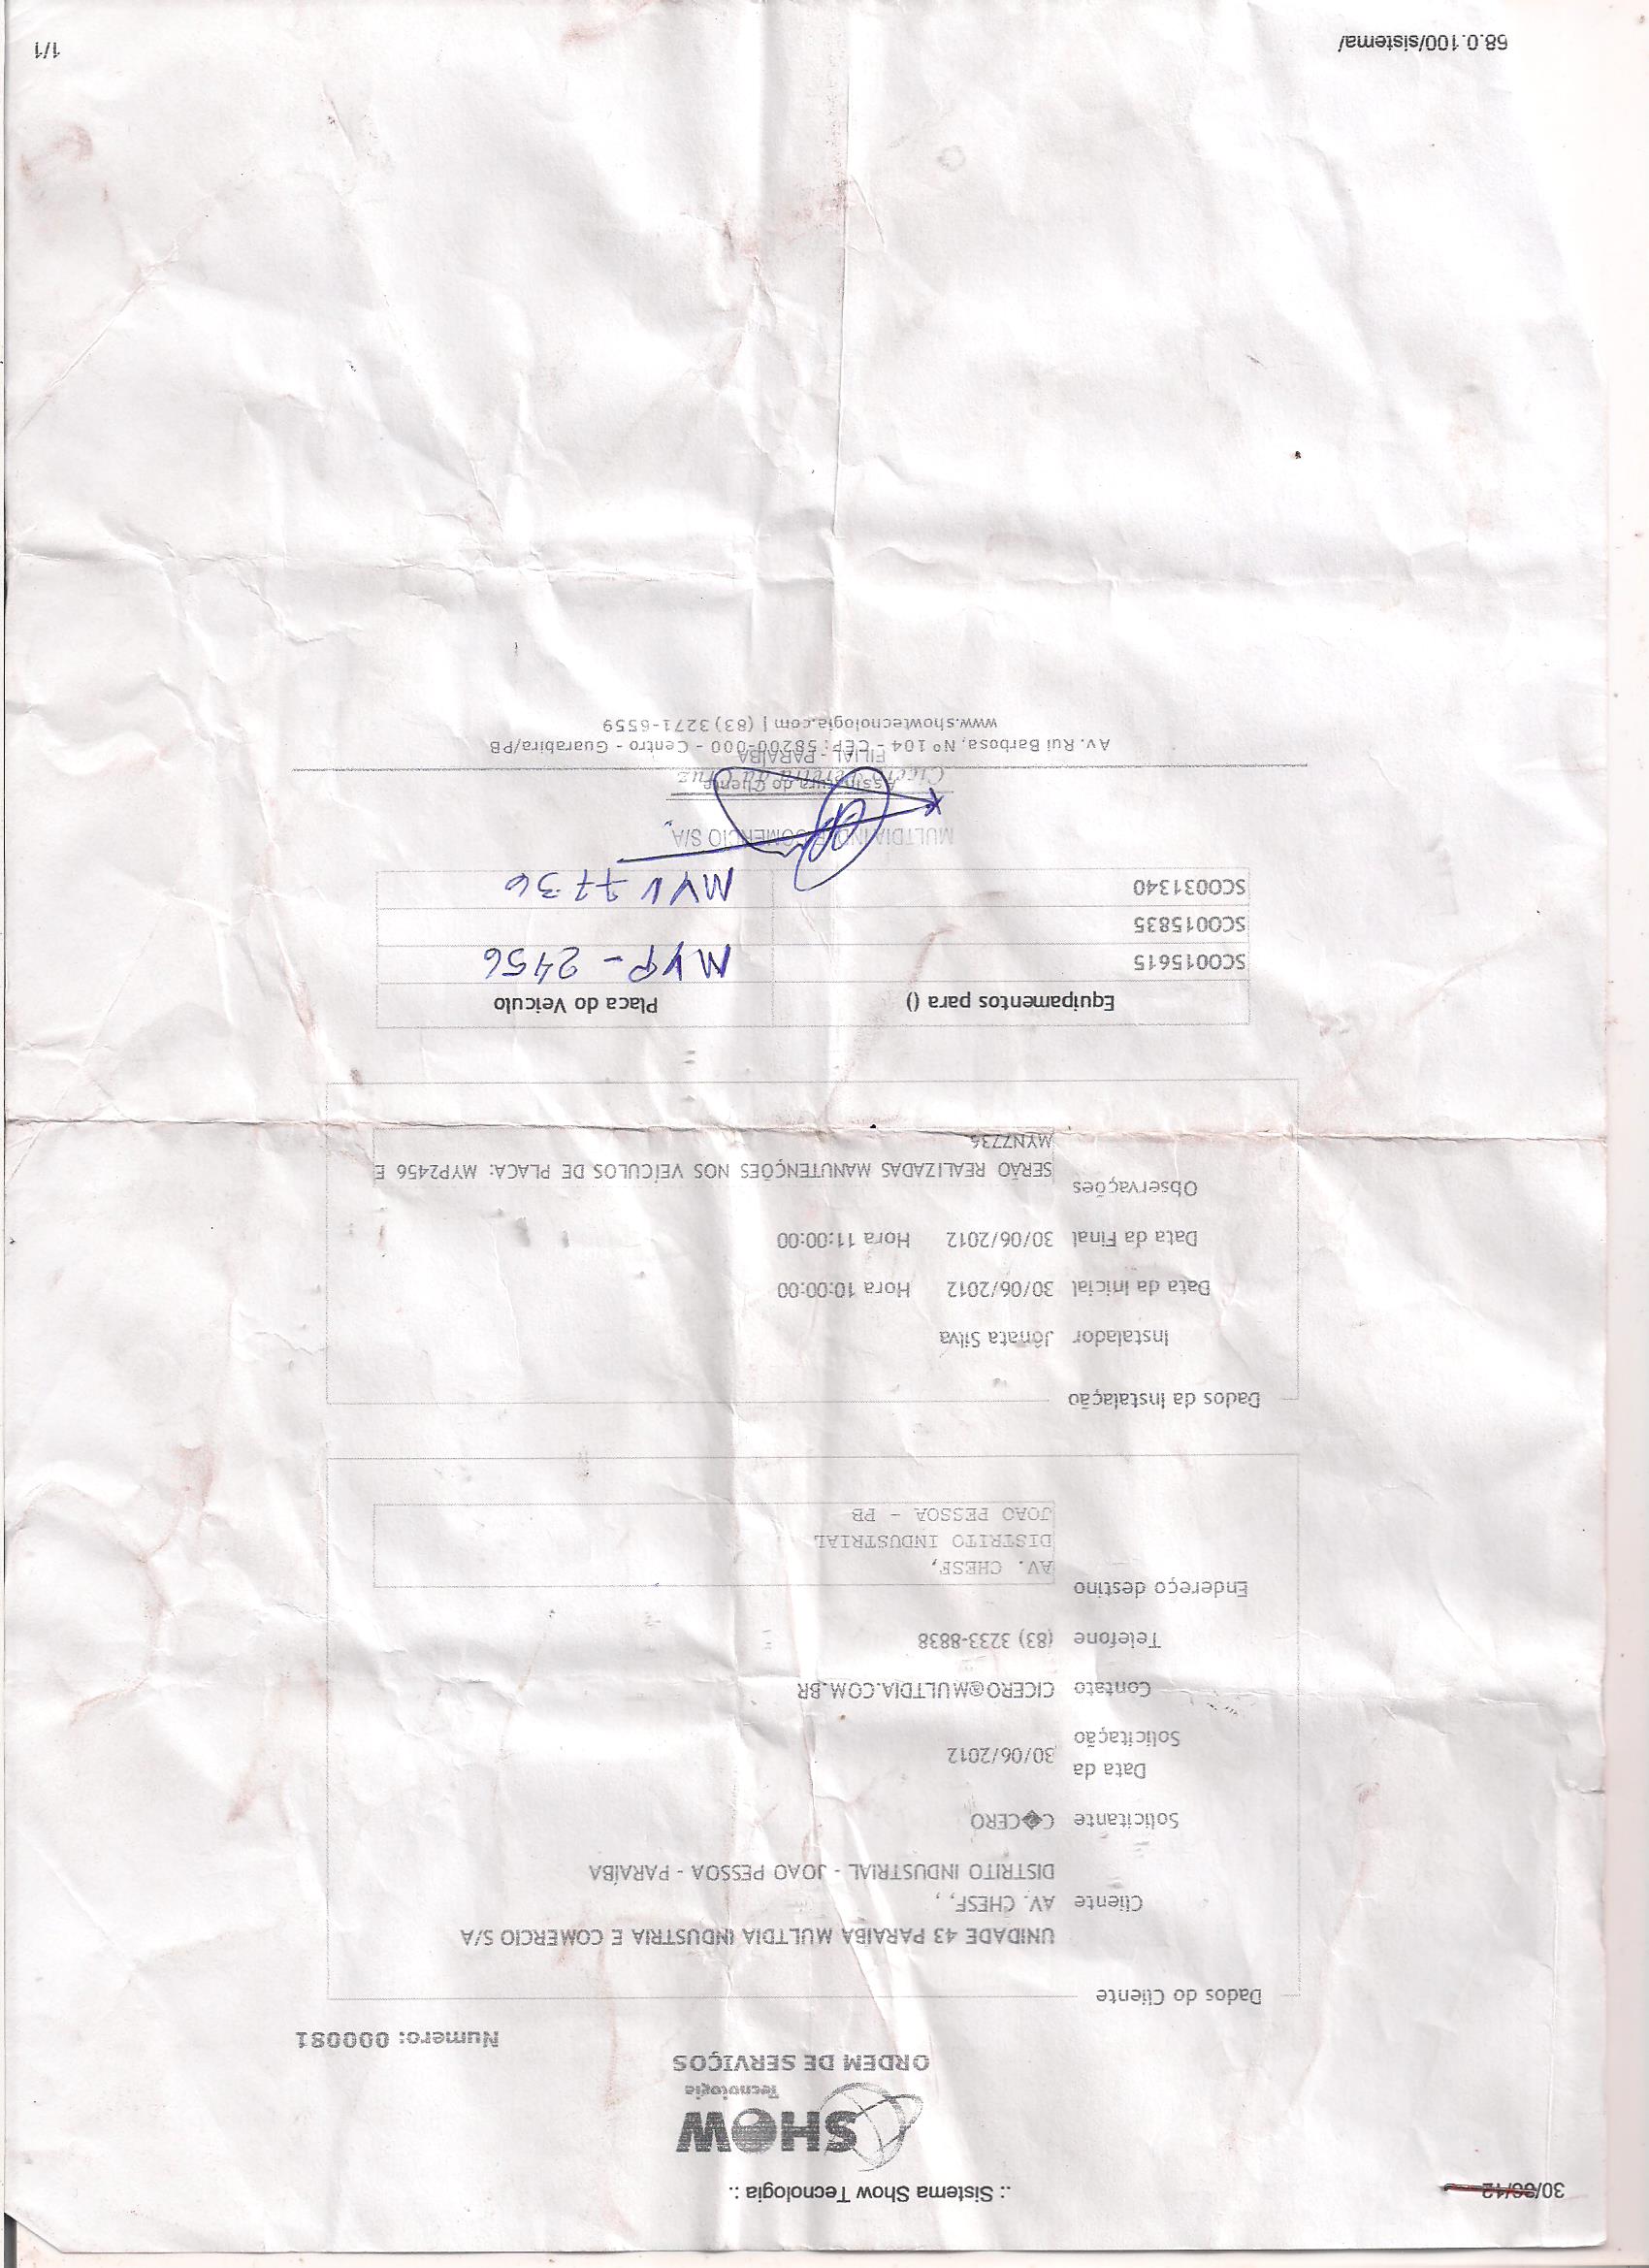 30/06/12
.: Sistema Show Tecnologia :.
SHOW
Tecnologia
ORDEM DE SERVIÇOS
Numero: 000081
Dados do Cliente
UNIDADE 43 PARAIBA MULTDIA INDUSTRIA E COMERCIO S/A
Cliente AV. CHESF, ,
DISTRITO INDUSTRIAL - JOAO PESSOA - PARAÍBA
Solicitante C�CERO
Data da
Solicitação 30/06/2012
Contato CICERO@MULTDIA.COM.BR
Telefone (83) 3233-8838
Endereço destino
AV. CHESF,
DISTRITO INDUSTRIAL
JOAO PESSOA - PB
Dados da Instalação
Instalador Jônata Silva
Data da Inicial 30/06/2012 Hora 10:00:00
Data da Final 30/06/2012 Hora 11:00:00
Observações
SERÃO REALIZADAS MANUTENÇÕES NOS VEÍCULOS DE PLACA: MYP2456 E
MYN7736
Equipamentos para () Placa do Veiculo
SC0015615 MYP - 2456
SC0015835
SC0031340 MYV 7736
MULTDIA IND. E COMERCIO S/A
Assinatura do Cliente
Cicero Pereira da Cruz
FILIAL - PARAÍBA
Av. Rui Barbosa, Nº 104 - CEP: 58200-000 - Centro - Guarabira/PB
www.showtecnologia.com | (83) 3271-6559
68.0.100/sistema/
1/1